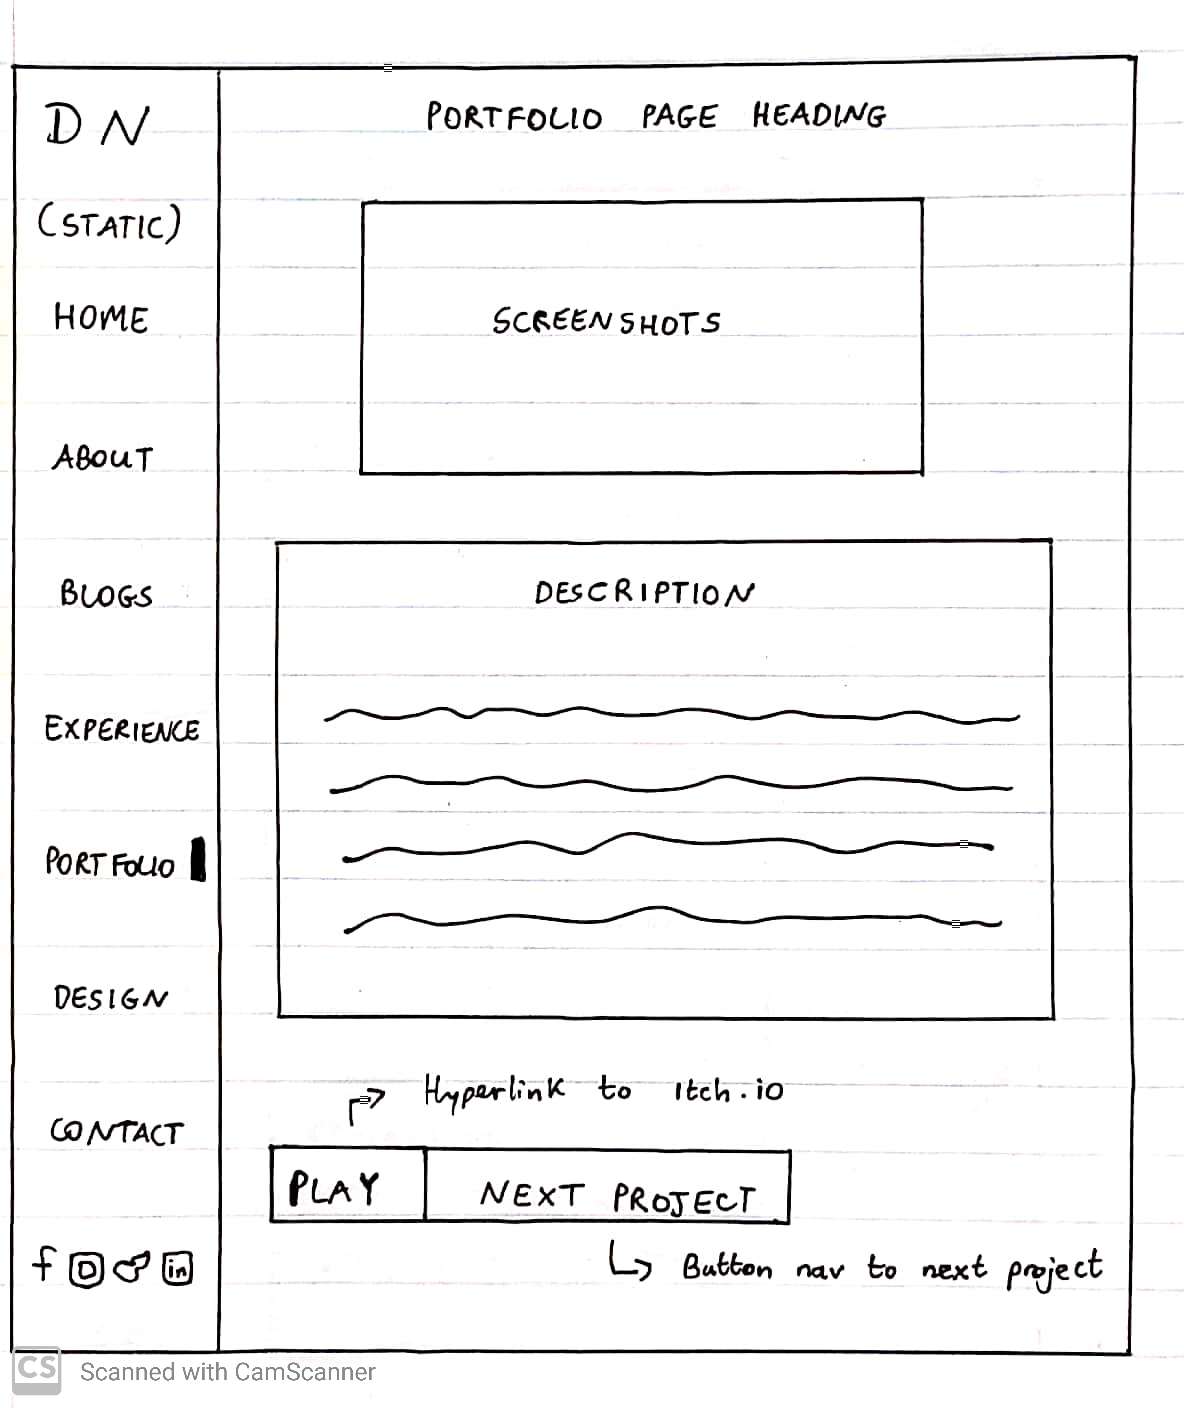 DN
(STATIC)
HOME
ABOUT
BLOGS
EXPERIENCE
PORTFOLIO
DESIGN
CONTACT
f in
PORTFOLIO PAGE HEADING
SCREENSHOTS
DESCRIPTION
Hyperlink to Itch.io
PLAY NEXT PROJECT
Button nav to next project
CS Scanned with CamScanner